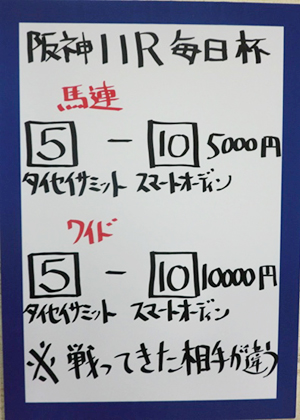 阪神11R毎日杯
馬連
5 － 10 5000円
タイセイサミット スマートオーディン
ワイド
5 － 10 10000円
タイセイサミット スマートオーディン
※戦ってきた相手が違う